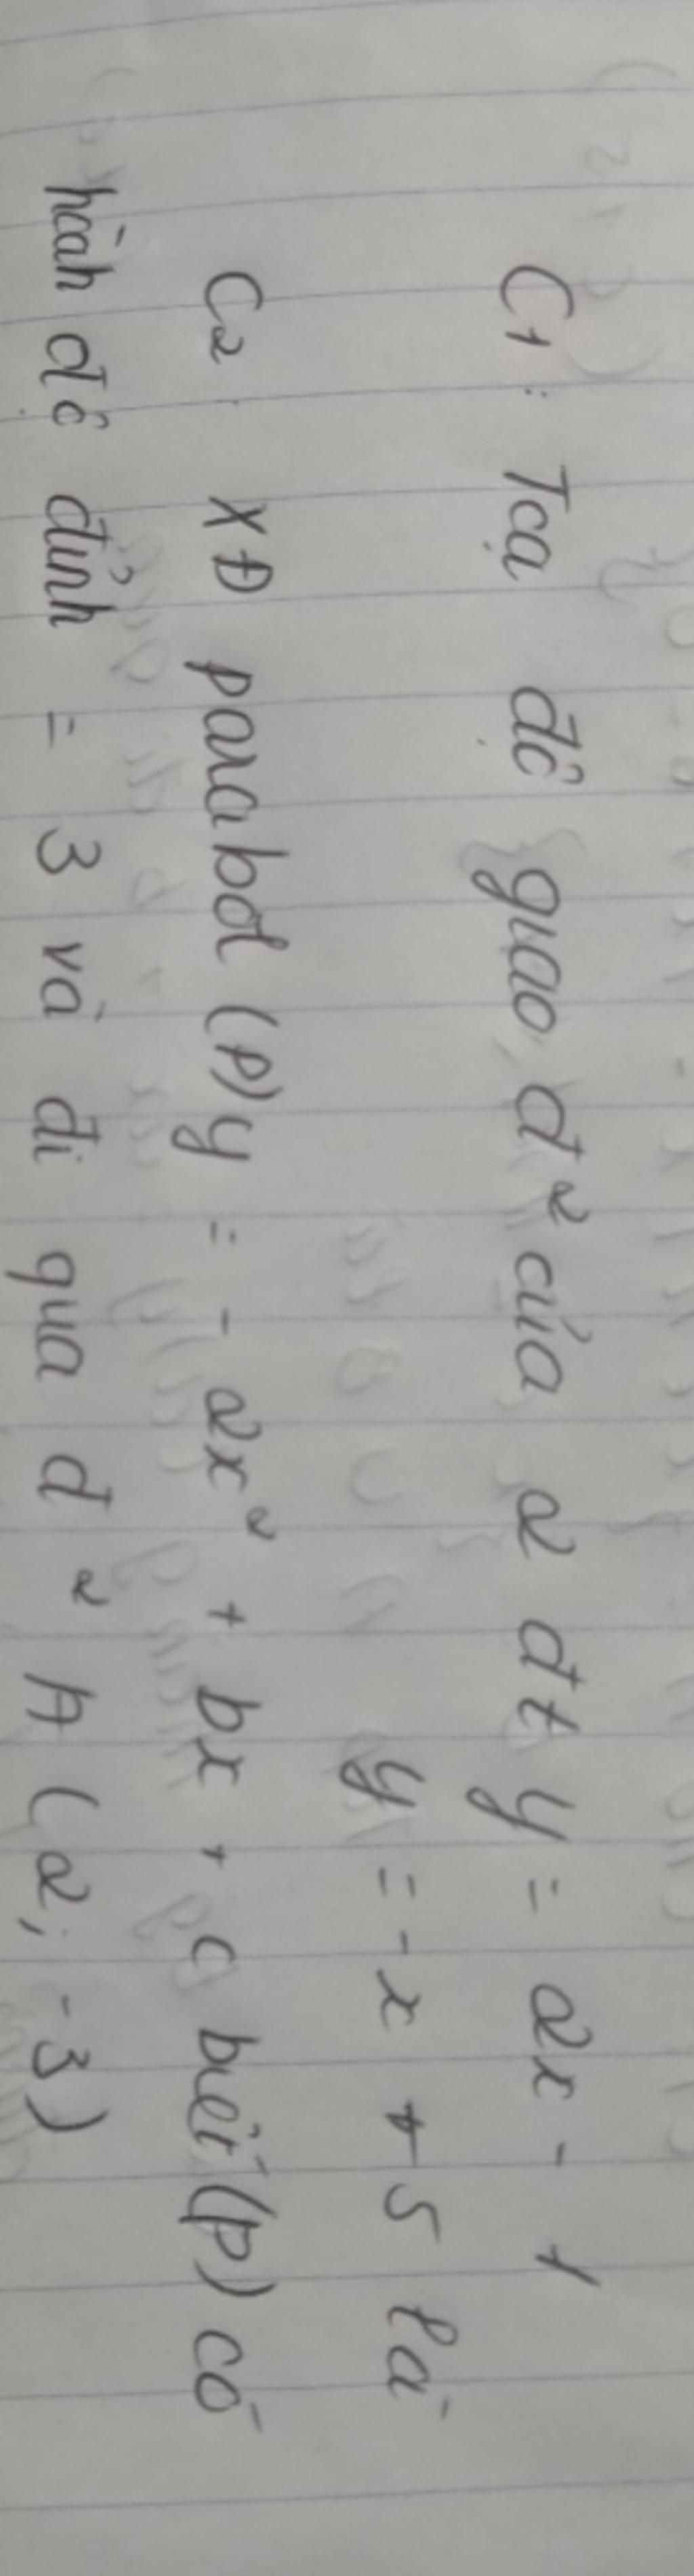 C1: Tọa độ giao đ² của 2 đt y = 2x - 1
y = -x + 5 là
C2: XĐ parabol (P) y = - 2x² + bx + c biết (P) có
hoành độ đỉnh = 3 và đi qua đ² A (2; -3)